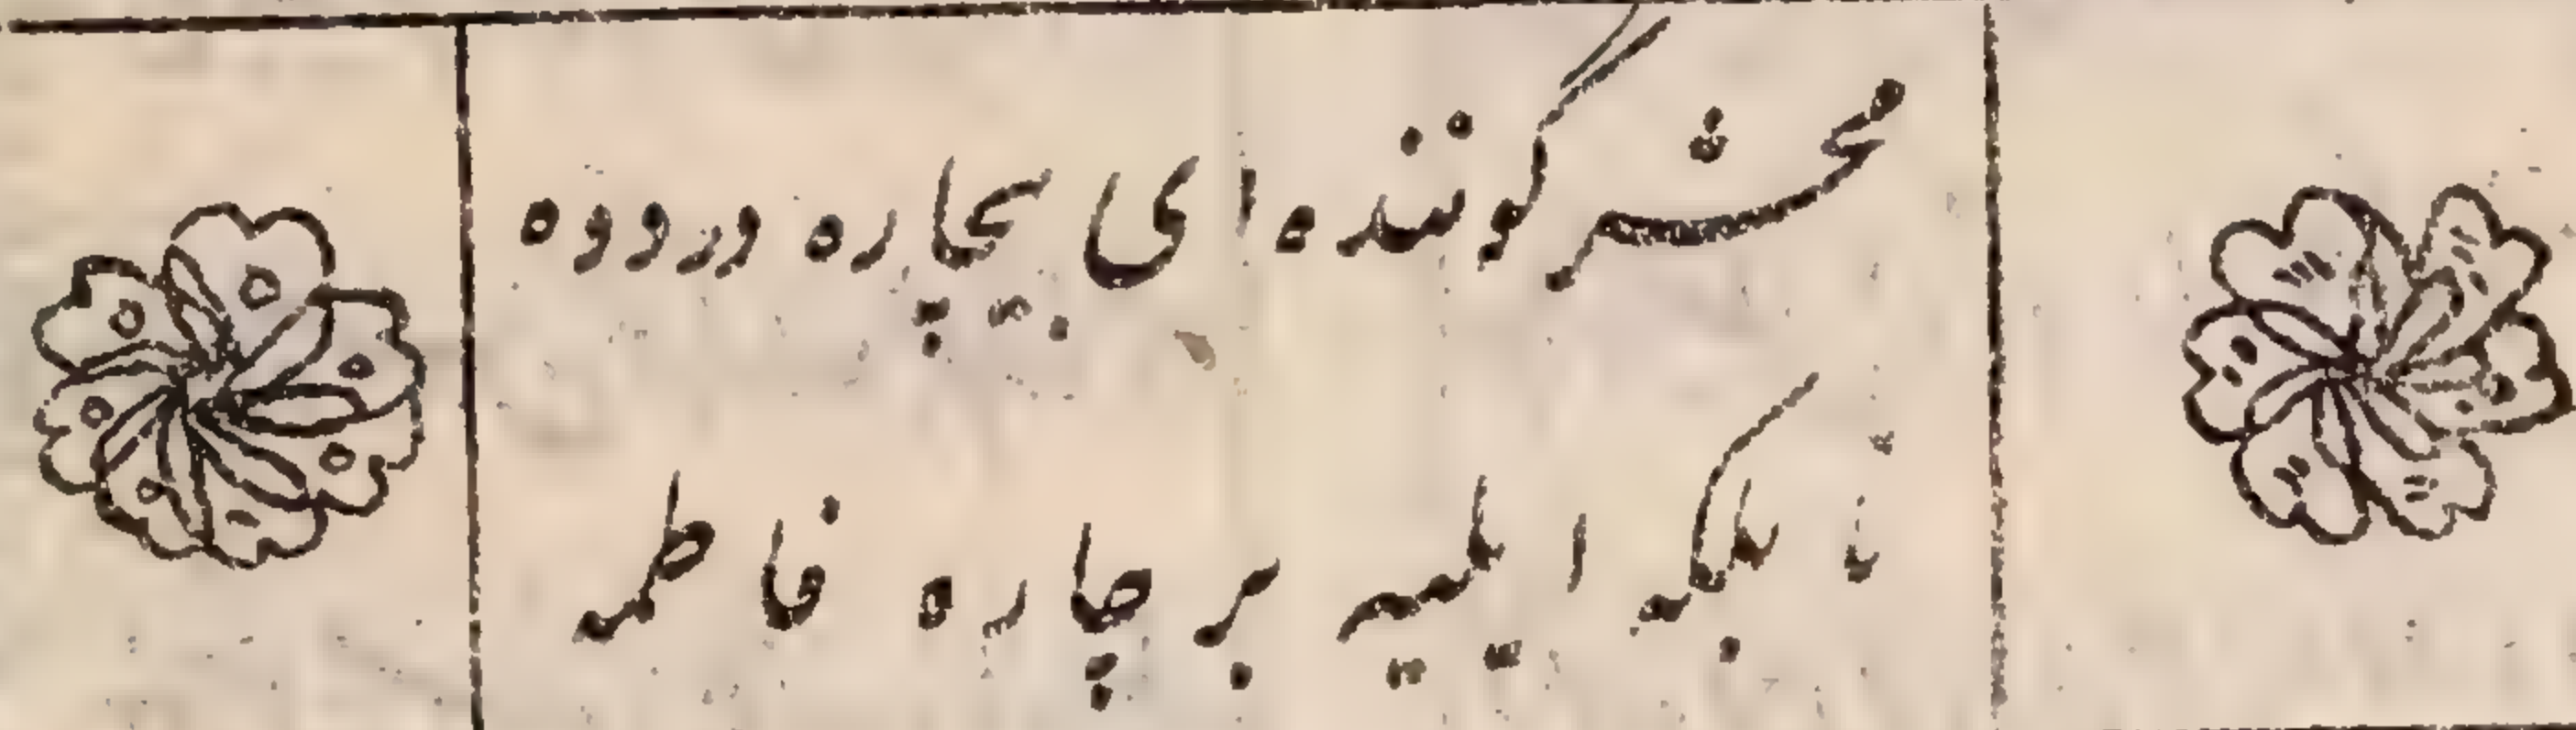 محشر گوننده ای بیچاره وردوه
تا بلکه ایلییه بر چاره فاطمه